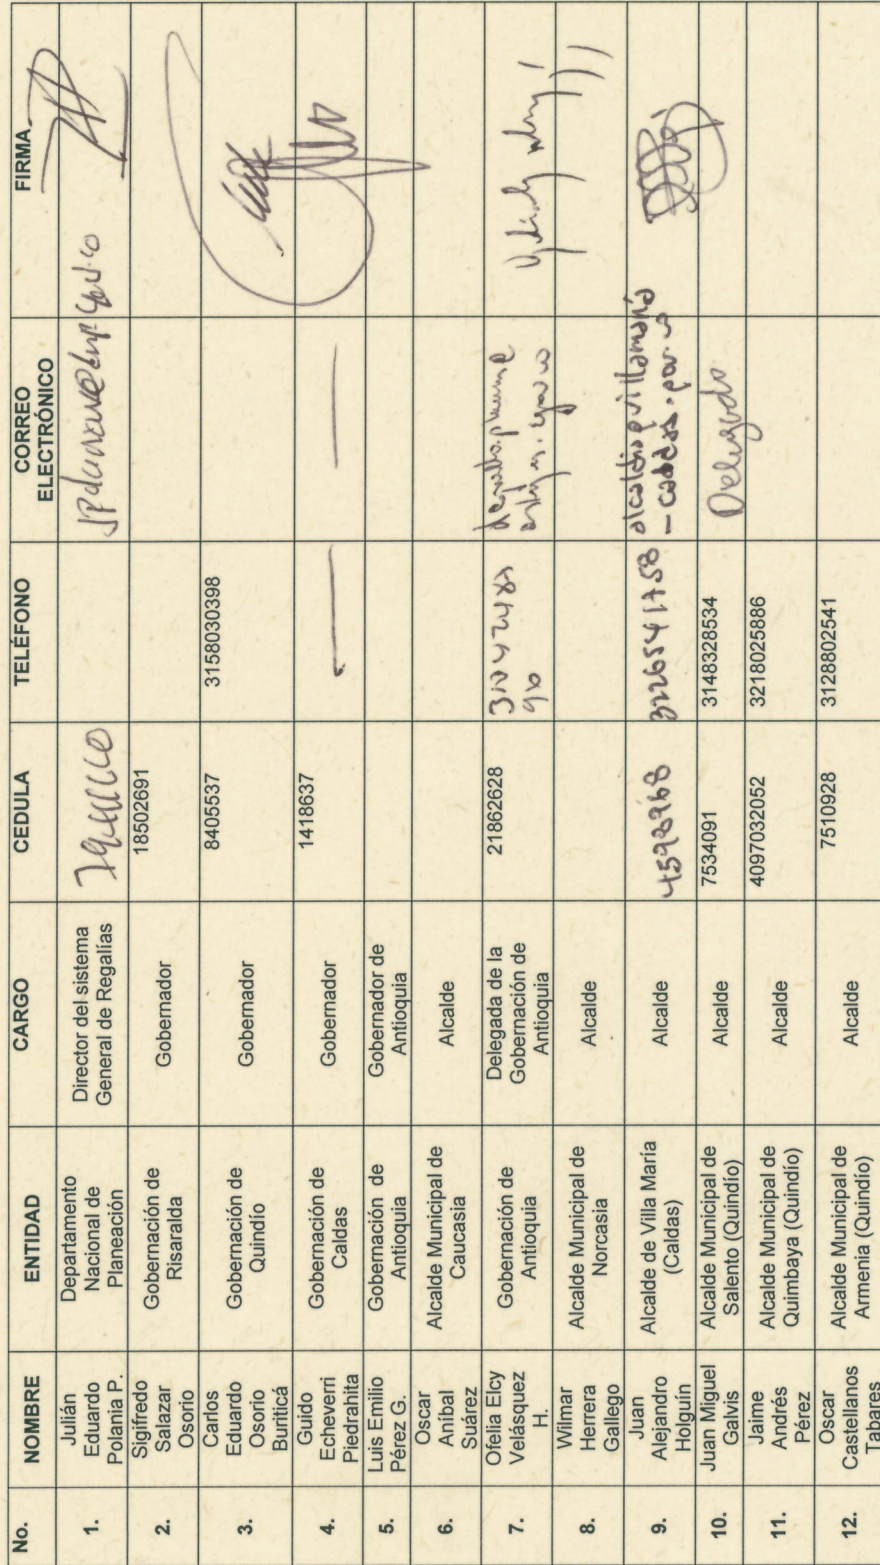 No. NOMBRE ENTIDAD CARGO CEDULA TELÉFONO CORREO ELECTRÓNICO FIRMA
1. Julián Eduardo Polania P. Departamento Nacional de Planeación Director del sistema General de Regalías
2. Sigifredo Salazar Osorio Gobernación de Risaralda Gobernador 18502691
3. Carlos Eduardo Osorio Buriticá Gobernación de Quindío Gobernador 8405537 3158030398
4. Guido Echeverri Piedrahita Gobernación de Caldas Gobernador 1418637
5. Luis Emilio Pérez G. Gobernación de Antioquia Gobernador de Antioquia
6. Oscar Anibal Suárez Alcalde Municipal de Caucasia Alcalde
7. Ofelia Elcy Velásquez H. Gobernación de Antioquia Delegada de la Gobernación de Antioquia 21862628
8. Wilmar Herrera Gallego Alcalde Municipal de Norcasia Alcalde
9. Juan Alejandro Holguín Alcalde de Villa María (Caldas) Alcalde 4598968 3226541758
10. Juan Miguel Galvis Alcalde Municipal de Salento (Quindío) Alcalde 7534091 3148328534 Delegado
11. Jaime Andrés Pérez Alcalde Municipal de Quimbaya (Quindío) Alcalde 4097032052 3218025886
12. Oscar Castellanos Tabares Alcalde Municipal de Armenia (Quindío) Alcalde 7510928 3128802541